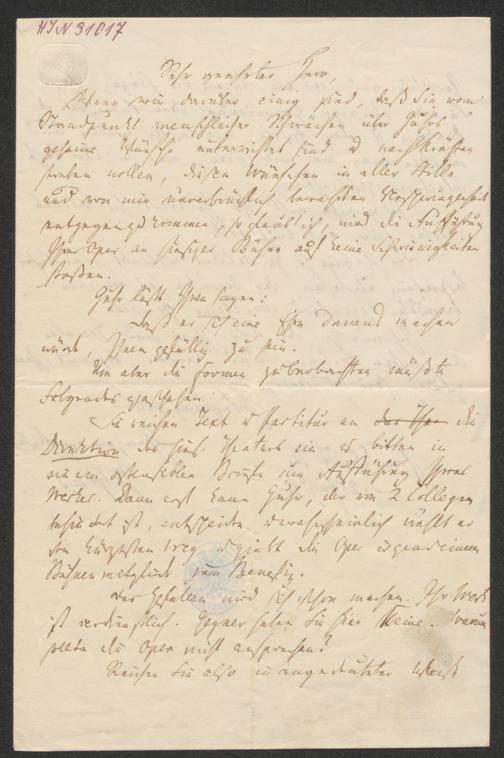 HIN 31017
Sehr geehrter Herr,
Wenn wir darüber einig sind, daß Sie vom
Standpunkt menschlicher Schwächen über Guhrs
geheime Wünsche unterrichtet sind u nach Kräften
streben wollen, diesen Wünschen in aller Stille
und von mir unverbrüchlich bewahrten Verschwiegenheit
entgegenzukommen, so glaub' ich, wird die Aufführung
Ihrer Oper an hiesiger Bühne auf keine Schwierigkeiten
stoßen.
Guhr läßt Ihnen sagen:
Daß er sich eine Ehre daraus machen
würde, Ihnen gefällig zu sein.
Um aber die Formen zu beobachten müßte
Folgendes geschehen:
Sie reichen Text u Partitur an die
Direktion des hies. Theaters ein u bitten in
einem ostensiblen Briefe um Aufführung Ihres
Werkes. Dann erst kann Guhr, der von 2 Collegen
behindert ist, entscheiden u wahrscheinlich wählt er
den kürzesten Weg u giebt die Oper irgend einem
Bühnenmitglied zum Benefiz.
Das Gefallen wird sich schon machen. Ihr Werk
ist verdienstlich. Gegner haben Sie hier keine. Warum
sollte die Oper nicht ansprechen?
Reichen Sie also in angedeuteter Weise